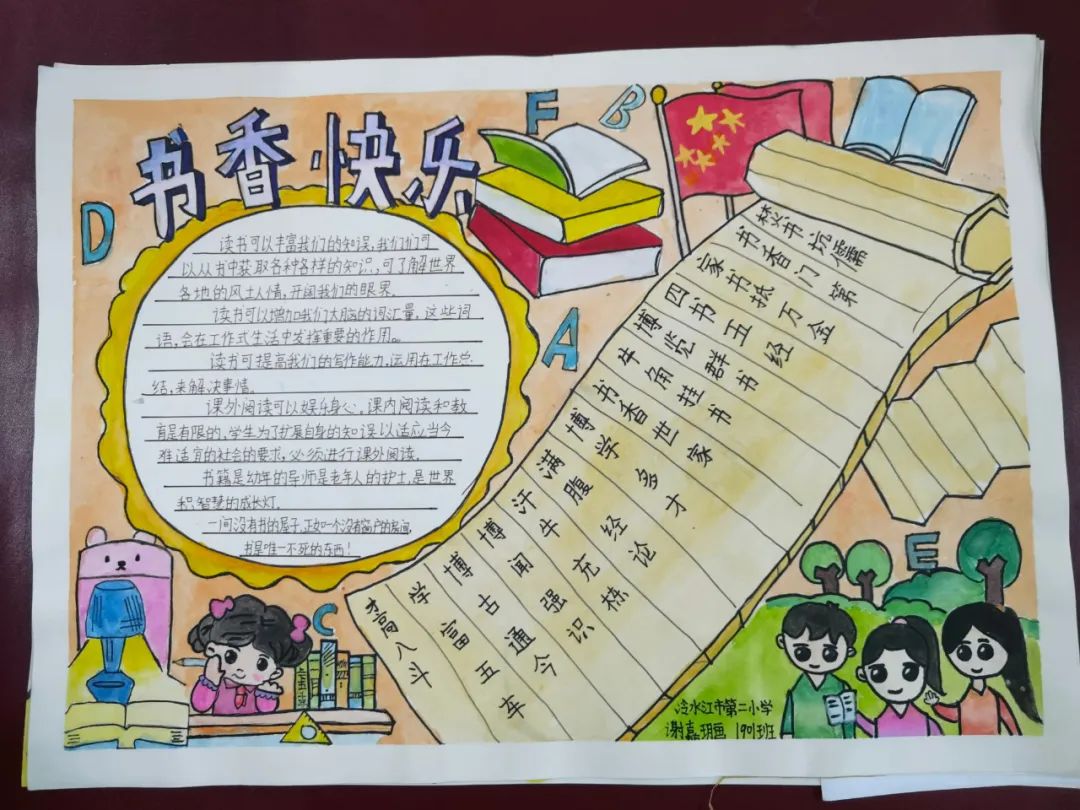 书香·快乐
D
F
B
A
C
E
读书可以丰富我们的知误,我们们可
以从从书中获取各种各样的知识,可了解世界
各地的风土人情,开阔我们的眼界.
读书可以增加我们大脑的词汇量,这些词
语,会在工作式生活中发挥重要的作用。
读书可提高我们的写作能力,运用在工作总
结,来解决事情.
课外阅读可以娱乐身心,课内阅读和教
育是有限的,学生为了扩展自身的知误以适应当今
难适宜的社会的要求,必须进行课外阅读.
书籍是幼年的导师是老年人的护士,是世界
积智慧的成长灯.
一间没有书的屋子,正如一个没有窗户的房间
书是唯一不死的东西!
焚书坑儒
书香门第
家书抵万金
四书五经
博览群书
牛角挂书
书香世家
博学多才
满腹经论
汗牛充栋
博闻强识
博古通今
学富五车
才高八斗
冷水江市第二小学
谢嘉玥画 1901班